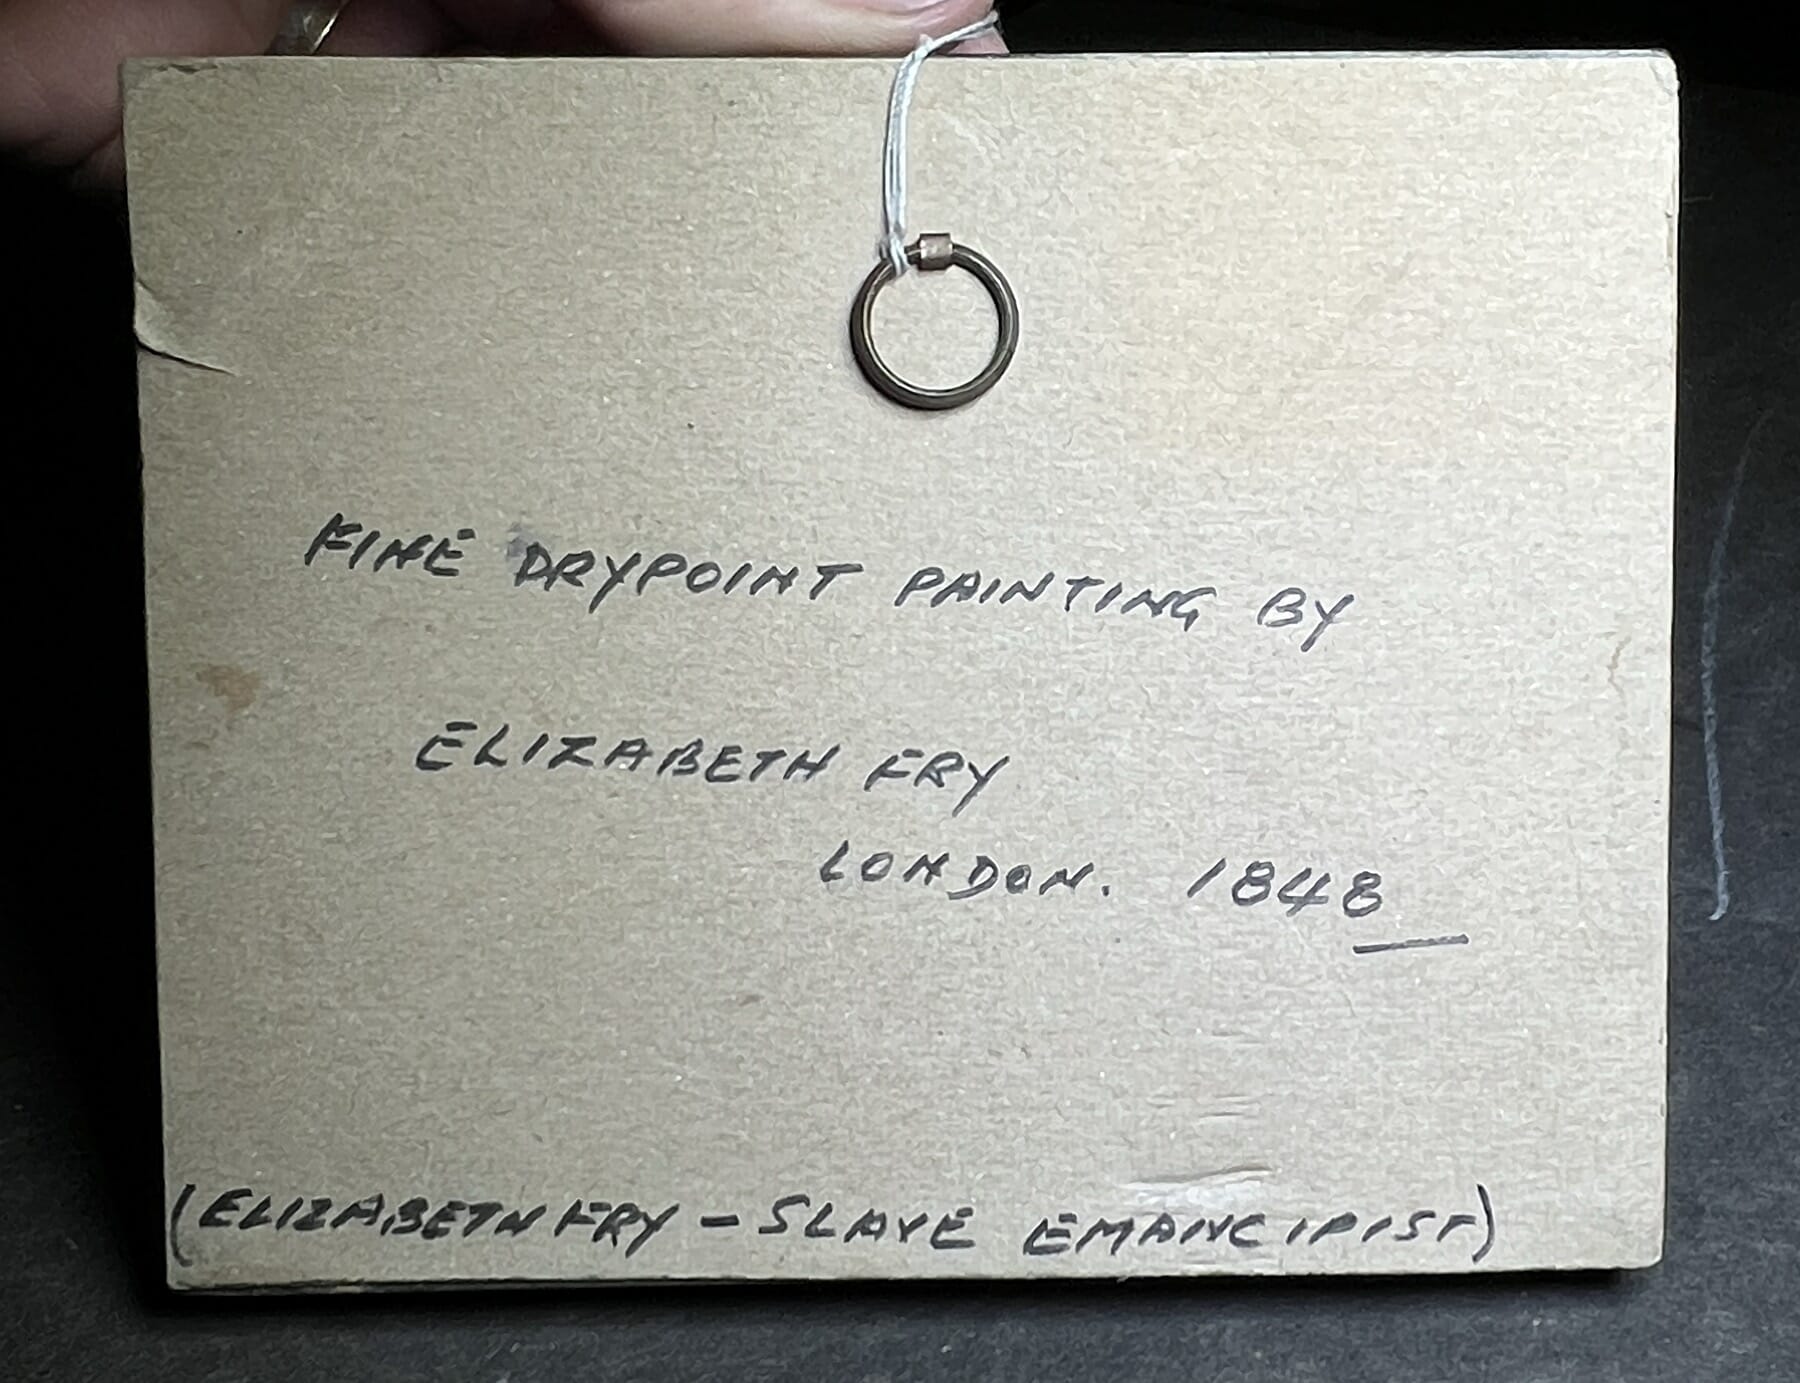 FINE DRYPOINT PAINTING BY
ELIZABETH FRY
LONDON. 1848
(ELIZABETH FRY - SLAVE EMANCIPIST)